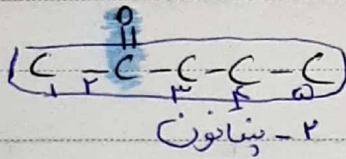 O
||
C - C - C - C - C
۱ ۲ ۳ ۴ ۵
۲ - پنتانون